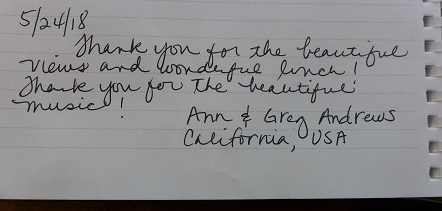 5/24/18
Thank you for the beautiful
views and wonderful lunch!
Thank you for the beautiful
music!
Ann & Greg Andrews
California, USA